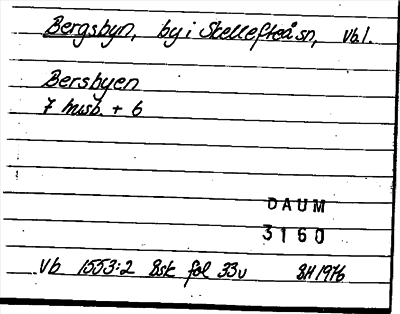 Bergsbyn, by i Skellefteå sn, Vb l.
Bersbyen
7 msb. + 6
DAUM
3160
Vb 1553:2 Bsk fol 33v BH 1976